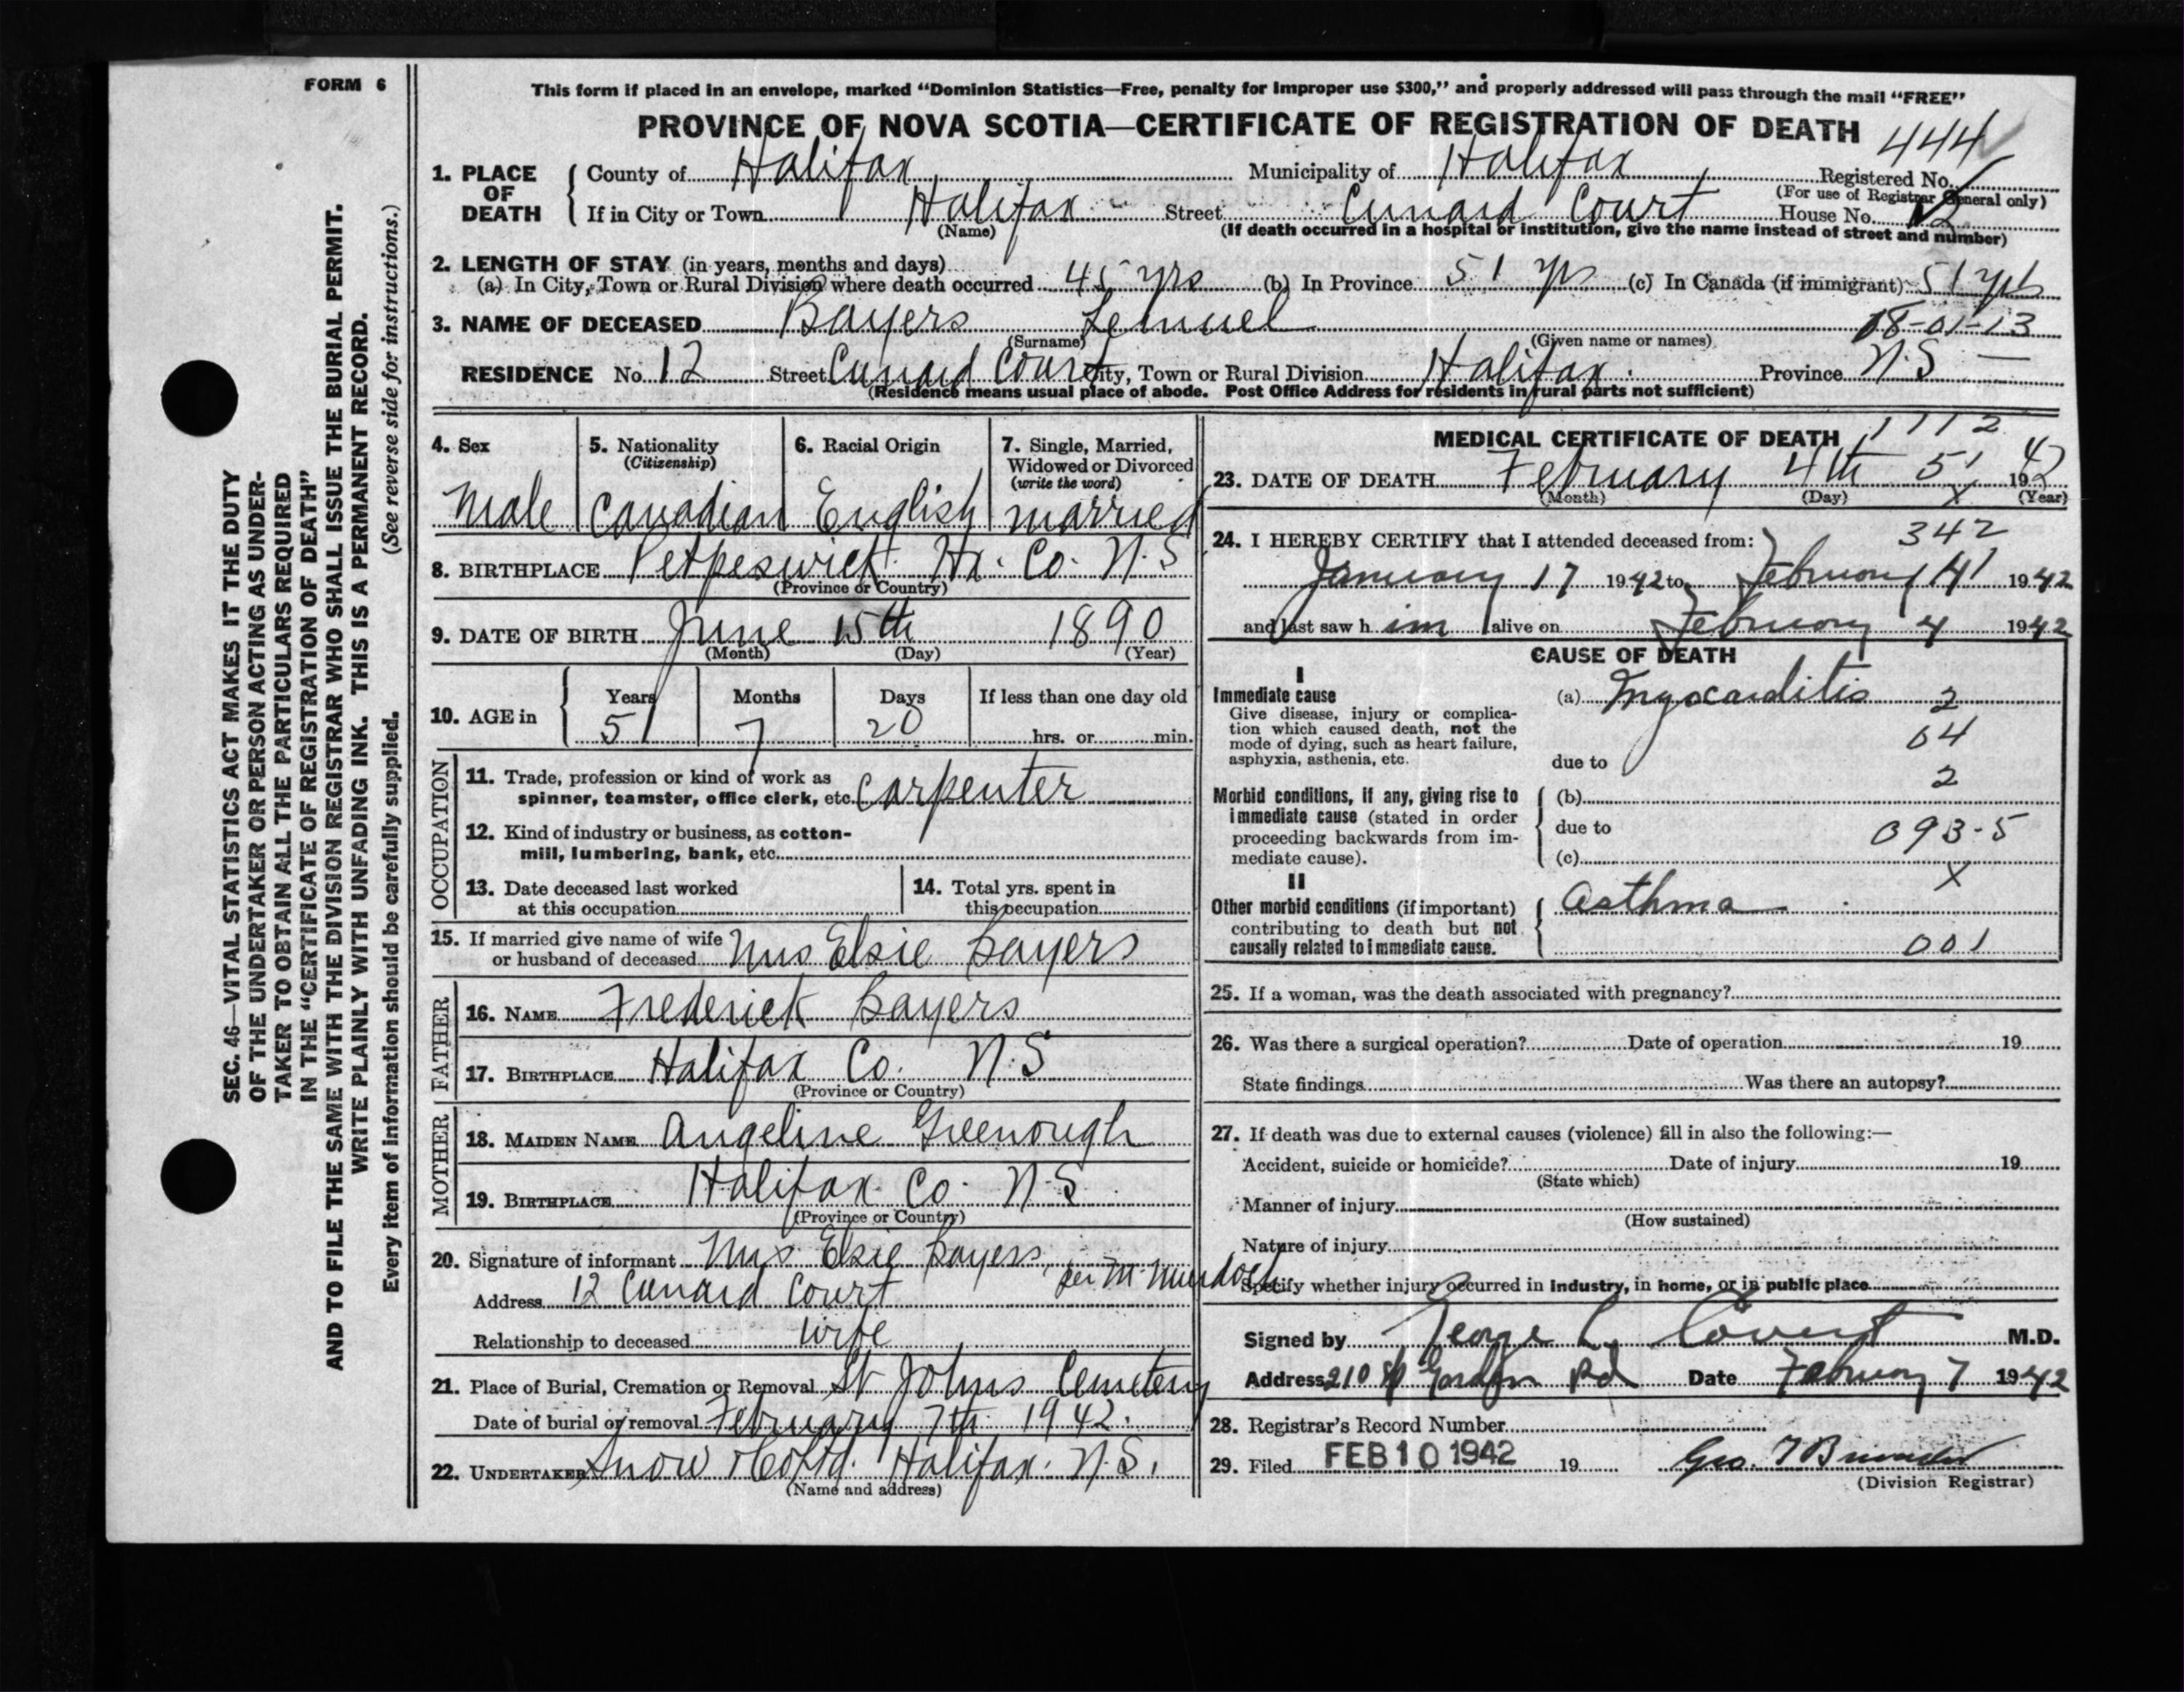 FORM 6
SEC. 46—VITAL STATISTICS ACT MAKES IT THE DUTY
OF THE UNDERTAKER OR PERSON ACTING AS UNDER-
TAKER TO OBTAIN ALL THE PARTICULARS REQUIRED
IN THE "CERTIFICATE OF REGISTRATION OF DEATH"
AND TO FILE THE SAME WITH THE DIVISION REGISTRAR WHO SHALL ISSUE THE BURIAL PERMIT.
WRITE PLAINLY WITH UNFADING INK. THIS IS A PERMANENT RECORD.
Every item of Information should be carefully supplied. (See reverse side for instructions.)
This form if placed in an envelope, marked "Dominion Statistics—Free, penalty for improper use $300," and properly addressed will pass through the mail "FREE"
PROVINCE OF NOVA SCOTIA—CERTIFICATE OF REGISTRATION OF DEATH
444
1. PLACE OF DEATH County of Halifax Municipality of Halifax Registered No.
(For use of Registrar General only)
If in City or Town Halifax Street Cunard Court House No. 12
(Name) (If death occurred in a hospital or institution, give the name instead of street and number)
2. LENGTH OF STAY (in years, months and days)
(a) In City, Town or Rural Division where death occurred 45 yrs (b) In Province 51 yrs (c) In Canada (if immigrant) 51 yrs
3. NAME OF DECEASED Bayers Lemuel 18-01-13
(Surname) (Given name or names)
RESIDENCE No. 12 Street Cunard Court City, Town or Rural Division Halifax. Province N.S —
(Residence means usual place of abode. Post Office Address for residents in rural parts not sufficient)
4. Sex
Male
5. Nationality
(Citizenship)
Canadian
6. Racial Origin
English
7. Single, Married,
Widowed or Divorced
(write the word)
married
8. BIRTHPLACE Petpeswick Hx. Co. N.S
(Province or Country)
9. DATE OF BIRTH June 15th 1890
(Month) (Day) (Year)
10. AGE in Years Months Days If less than one day old
51 7 20 hrs. or min.
OCCUPATION
11. Trade, profession or kind of work as
spinner, teamster, office clerk, etc. Carpenter
12. Kind of industry or business, as cotton-
mill, lumbering, bank, etc.
13. Date deceased last worked
at this occupation
14. Total yrs. spent in
this occupation
15. If married give name of wife
or husband of deceased Mrs Elsie Bayers
FATHER
16. NAME Frederick Bayers
17. BIRTHPLACE Halifax Co. N.S
(Province or Country)
MOTHER
18. MAIDEN NAME Angeline Greenough
19. BIRTHPLACE Halifax Co. N.S
(Province or Country)
20. Signature of informant Mrs. Elsie Bayers, per M. Murdoch
Address 12 Cunard Court
Relationship to deceased wife
21. Place of Burial, Cremation or Removal St Johns Cemetery
Date of burial or removal February 7th 1942.
22. UNDERTAKER Snow & Co Ltd. Halifax. N.S.
(Name and address)
MEDICAL CERTIFICATE OF DEATH 1112
23. DATE OF DEATH February 4th 51 1942
(Month) (Day) X (Year)
24. I HEREBY CERTIFY that I attended deceased from: 342
January 17 1942 to February 4 1942
and last saw him alive on February 4 1942
CAUSE OF DEATH
I
Immediate cause
Give disease, injury or complica-
tion which caused death, not the
mode of dying, such as heart failure,
asphyxia, asthenia, etc.
(a) Myocarditis 2
04
due to
2
Morbid conditions, if any, giving rise to
immediate cause (stated in order
proceeding backwards from im-
mediate cause).
(b)
due to 093-5
(c)
X
II
Other morbid conditions (if important)
contributing to death but not
causally related to immediate cause.
Asthma
001
25. If a woman, was the death associated with pregnancy?
26. Was there a surgical operation? Date of operation 19
State findings Was there an autopsy?
27. If death was due to external causes (violence) fill in also the following:—
Accident, suicide or homicide? Date of injury 19
(State which)
Manner of injury
(How sustained)
Nature of injury
Specify whether injury occurred in industry, in home, or in public place
Signed by George L. Covert M.D.
Address 210 Rd Date February 7 1942
28. Registrar's Record Number
29. Filed FEB 10 1942 19 Geo.
(Division Registrar)